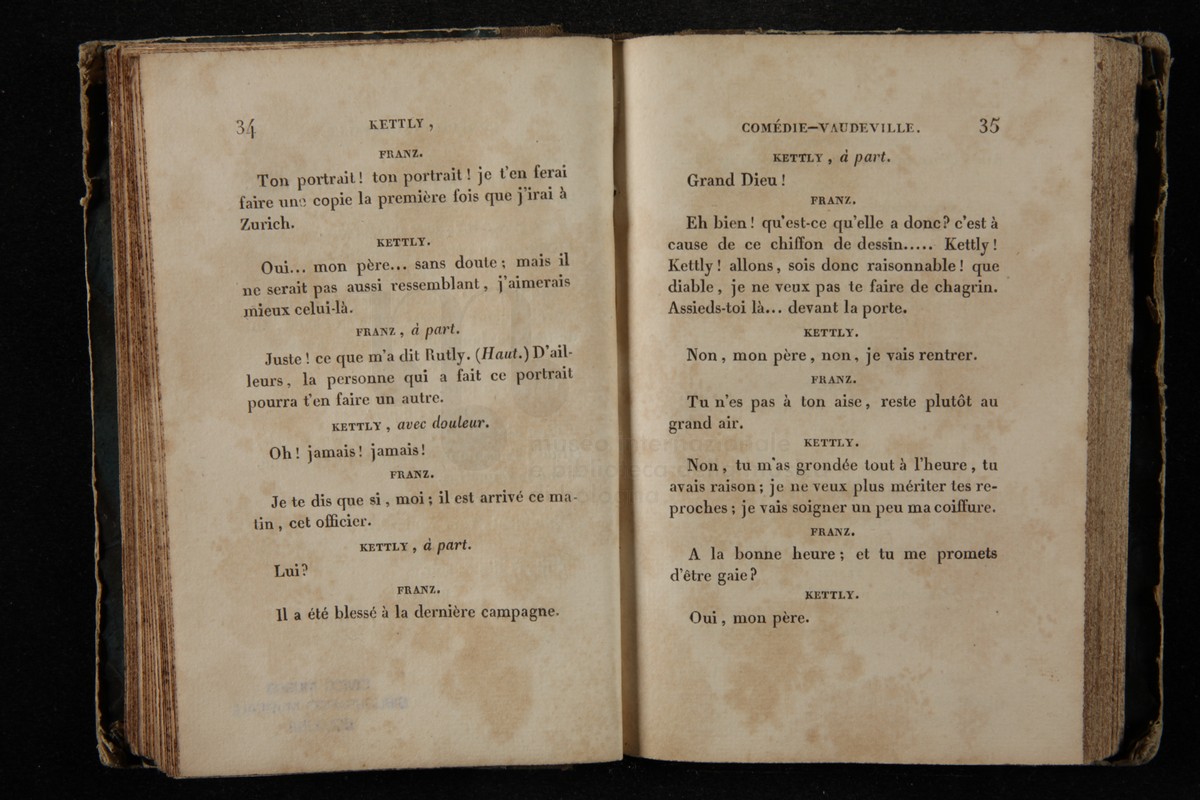 34
KETTLY,
FRANZ.
Ton portrait! ton portrait! je t'en ferai
faire une copie la première fois que j'irai à
Zurich.
KETTLY.
Oui... mon père... sans doute; mais il
ne serait pas aussi ressemblant, j'aimerais
mieux celui-là.
FRANZ, à part.
Juste! ce que m'a dit Rutly. (Haut.) D'ail-
leurs, la personne qui a fait ce portrait
pourra t'en faire un autre.
KETTLY, avec douleur.
Oh! jamais! jamais!
FRANZ.
Je te dis que si, moi; il est arrivé ce ma-
tin, cet officier.
KETTLY, à part.
Lui?
FRANZ.
Il a été blessé à la dernière campagne.
COMÉDIE-VAUDEVILLE.
35
KETTLY, à part.
Grand Dieu!
FRANZ.
Eh bien! qu'est-ce qu'elle a donc? c'est à
cause de ce chiffon de dessin..... Kettly!
Kettly! allons, sois donc raisonnable! que
diable, je ne veux pas te faire de chagrin.
Assieds-toi là... devant la porte.
KETTLY.
Non, mon père, non, je vais rentrer.
FRANZ.
Tu n'es pas à ton aise, reste plutôt au
grand air.
KETTLY.
Non, tu m'as grondée tout à l'heure, tu
avais raison; je ne veux plus mériter tes re-
proches; je vais soigner un peu ma coiffure.
FRANZ.
A la bonne heure; et tu me promets
d'être gaie?
KETTLY.
Oui, mon père.
museo internazionale
e biblioteca